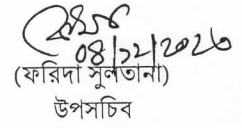 08/12/2020
(ফরিদা সুলতানা)
উপসচিব